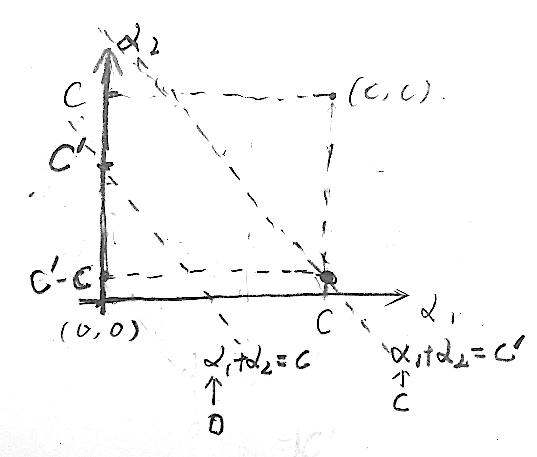 α₂
C
(C, C).
C'
C'-C
(0,0)
C
α₁
α₁+α₂=C
α₁+α₂=C'
↑
↑
D
C